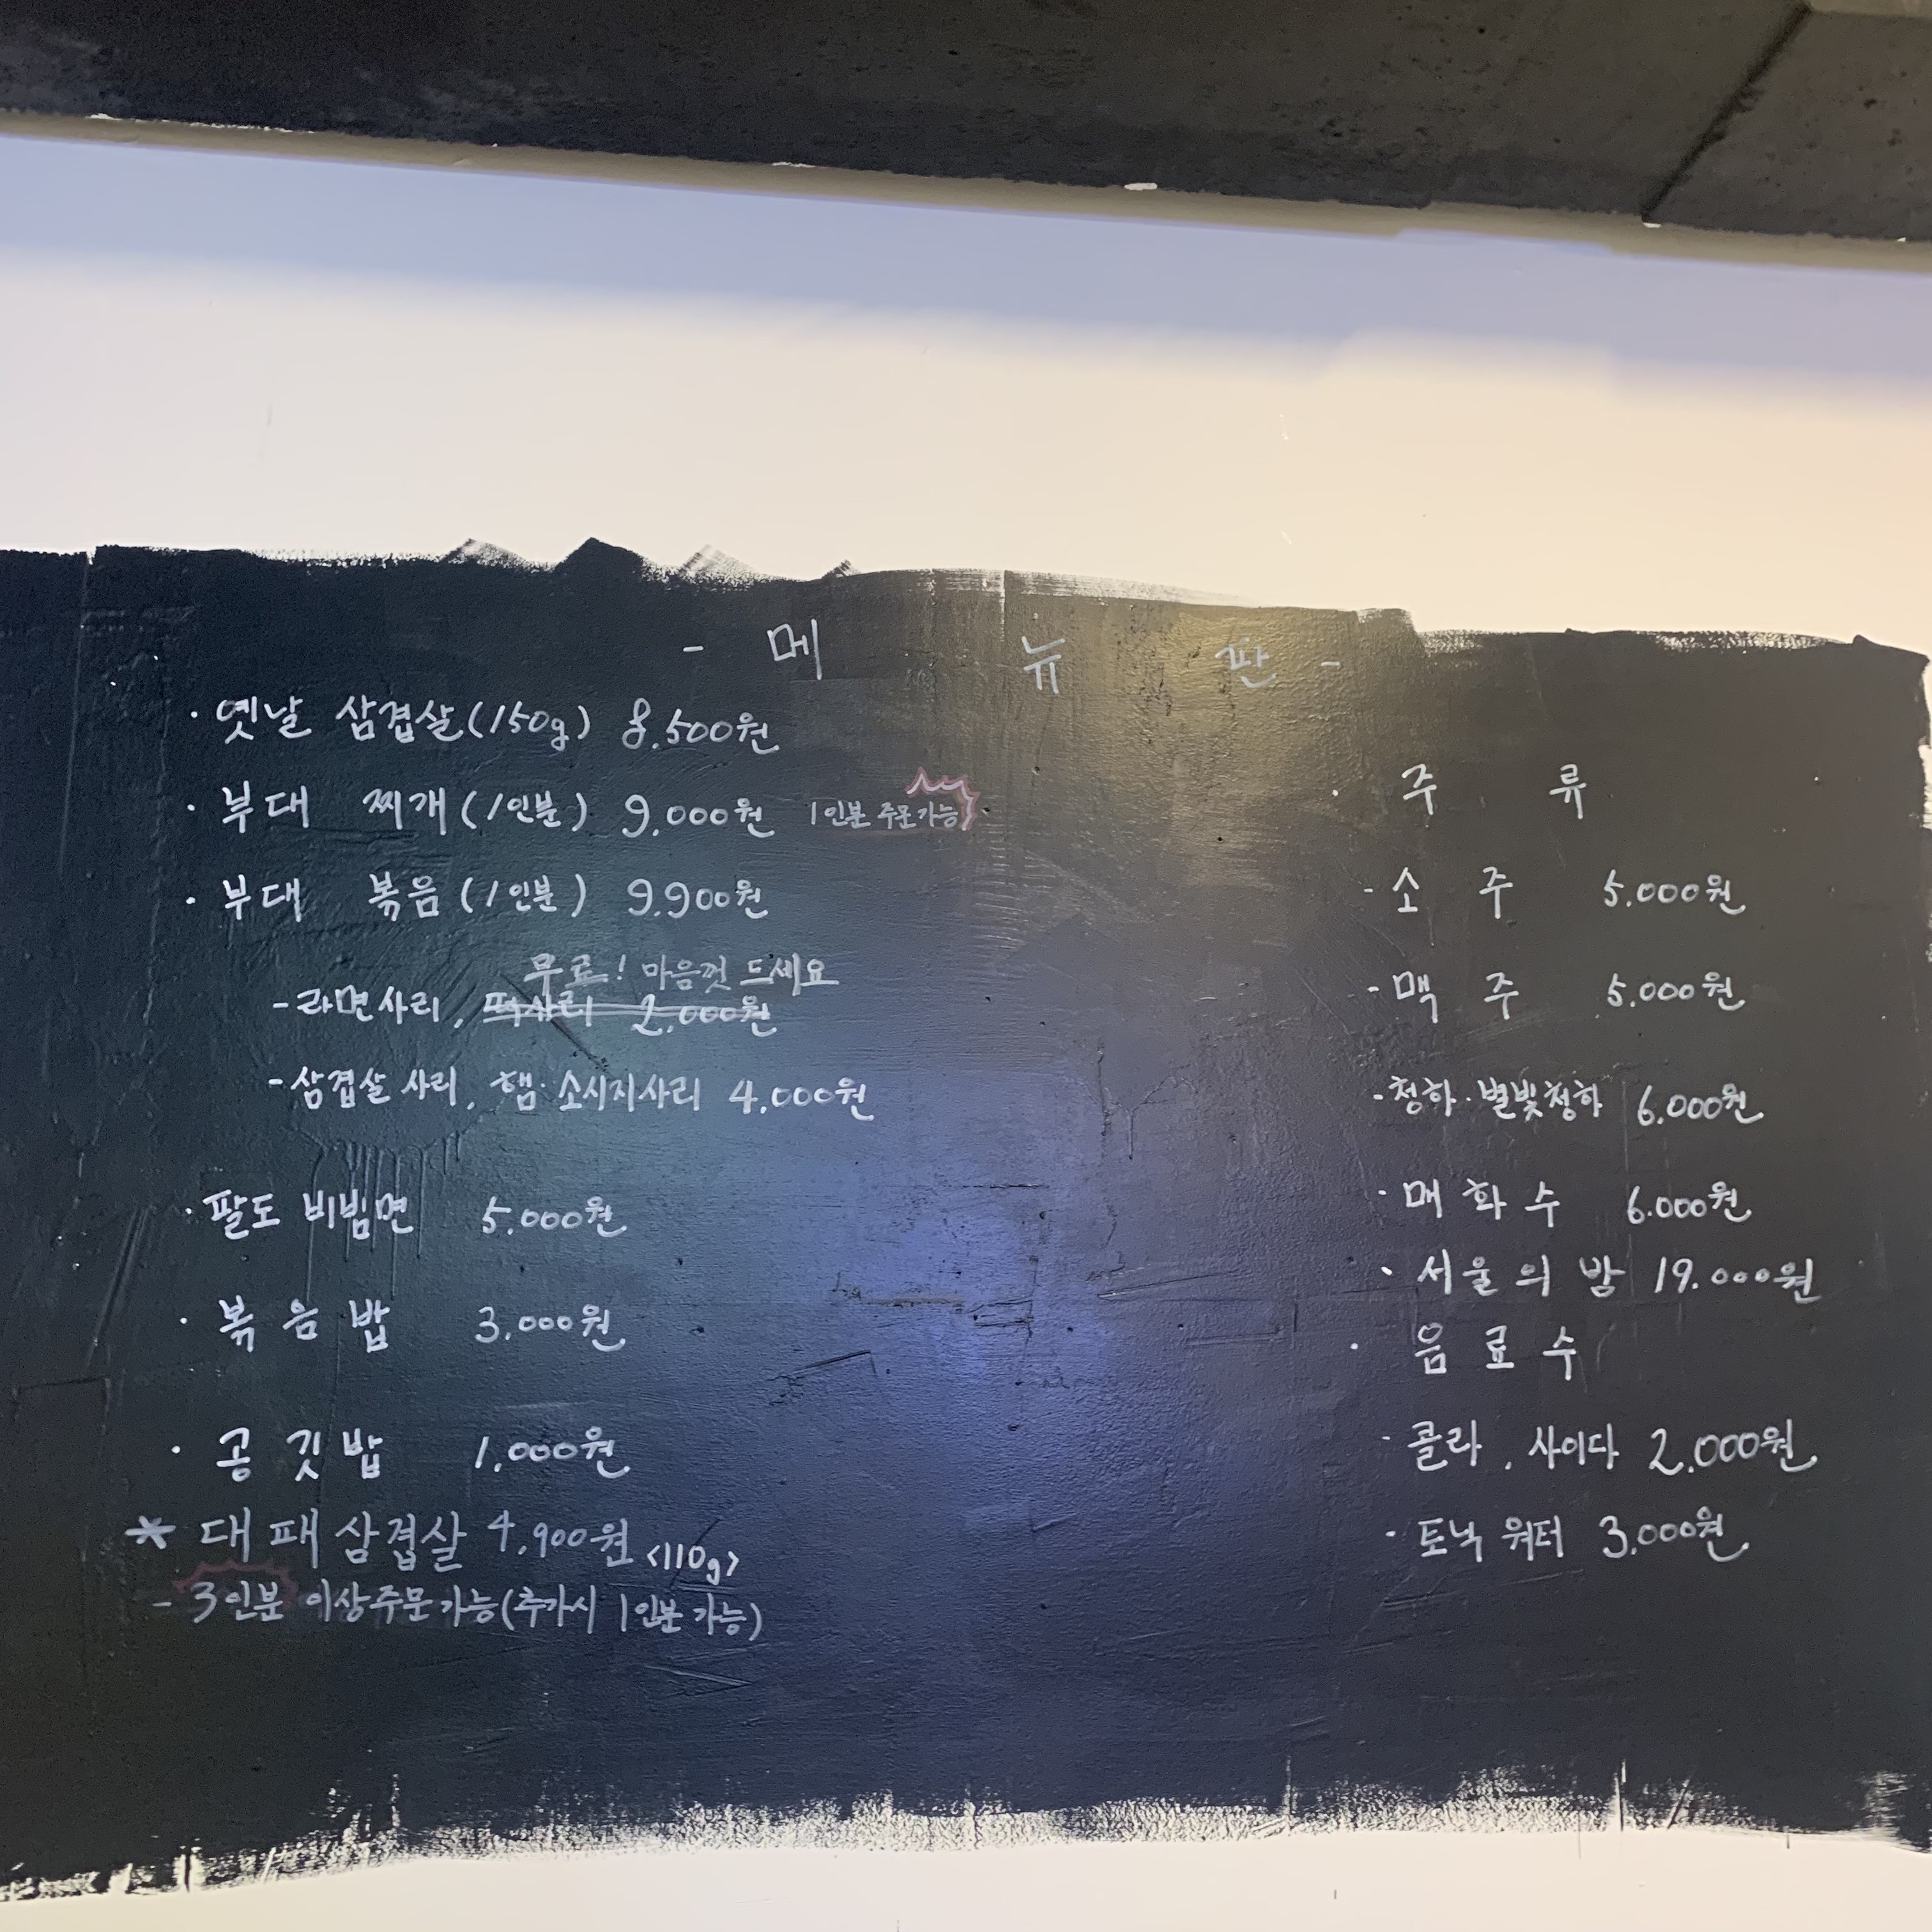 - 메 뉴 판 -
· 옛날 삼겹살(150g) 8.500원
· 부대 찌개(1인분) 9.000원 1인분 주문가능
· 부대 볶음(1인분) 9.900원
무료! 마음껏 드세요
- 라면사리, 떡사리 2.000원
- 삼겹살 사리, 햄·소시지사리 4.000원
· 팔도 비빔면 5.000원
· 볶음밥 3.000원
· 공깃밥 1.000원
* 대패삼겹살 4,900원 <110g>
- 3인분 이상주문가능(추가시 1인분 가능)
· 주 류
- 소 주 5.000원
- 맥 주 5.000원
- 청하·별빛청하 6.000원
· 매화수 6.000원
· 서울의 밤 19.000원
· 음료수
- 콜라, 사이다 2.000원
- 토닉 워터 3.000원